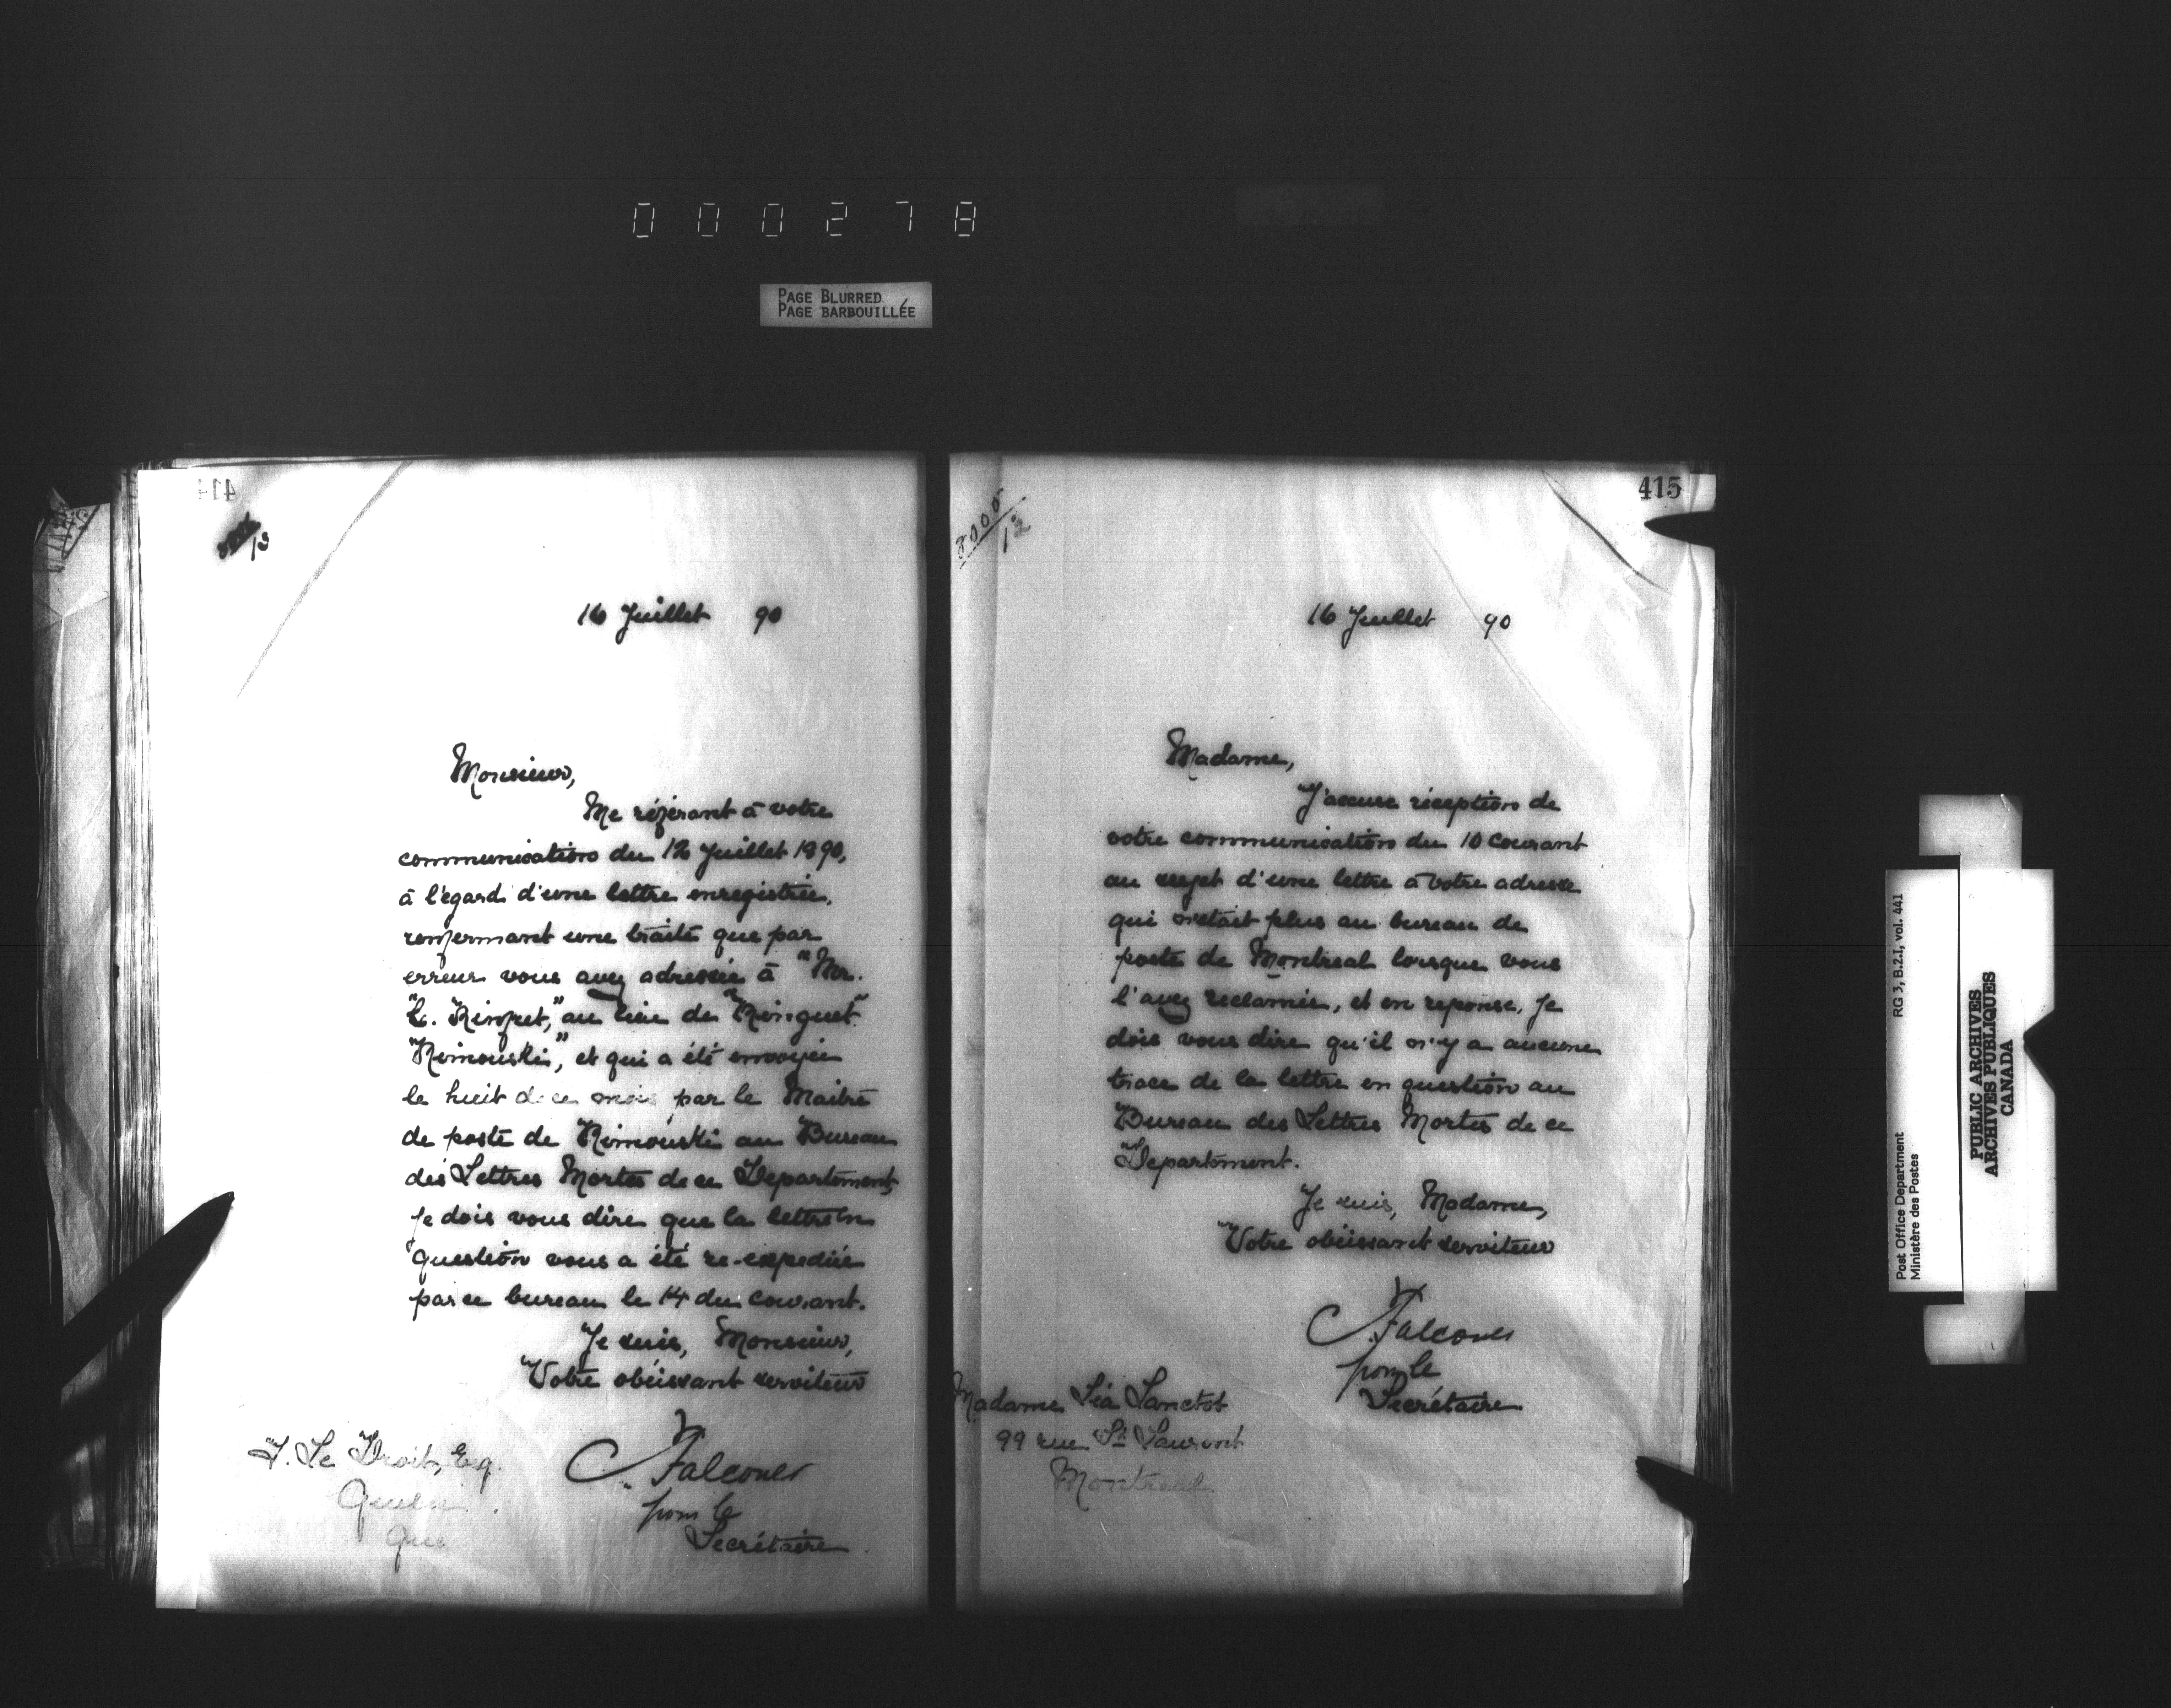 000278
PAGE BLURRED
PAGE BARBOUILLÉE
414
13
16 Juillet 90
Monsieur,
Me référant à votre
communication du 12 Juillet 1890,
à l'égard d'une lettre enregistrée,
renfermant une traite que par
erreur vous avez adressée à "Mr.
"L. Rinfret," au lieu de "Ringuet"
"Rimouski," et qui a été envoyée
le huit de ce mois par le Maître
de poste de Rimouski au Bureau
des Lettres Mortes de ce Departement,
je dois vous dire que la lettre en
question vous a été re-expediée
par ce bureau le 14 du courant.
Je suis, Monsieur,
Votre obéissant serviteur
C. Falconer
pour le
Secrétaire
T. Le Droit, Esq.
Quebec
Que
415
3005
12
16 Juillet 90
Madame,
J'accuse réception de
votre communication du 10 courant
au sujet d'une lettre à votre adresse
qui n'etait plus au bureau de
poste de Montreal lorsque vous
l'avez reclamée, et en reponse, je
dois vous dire qu'il n'y a aucune
trace de la lettre en question au
Bureau des Lettres Mortes de ce
Departement.
Je suis, Madame,
Votre obéissant serviteur
C. Falconer
pour le
Secrétaire
Madame Léa Lanctot
99 rue St Laurent
Montreal
Post Office Department RG 3, B.2.I, vol. 441
Ministère des Postes
PUBLIC ARCHIVES
ARCHIVES PUBLIQUES
CANADA